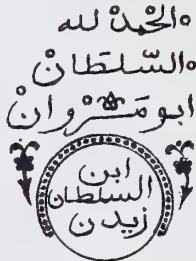 الحمد لله
السّلطان
ابو مروان
ابن
السلطان
زيدن